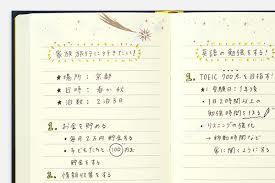 家族旅行に行きたい!
★場所:京都
★日時:春か秋
★泊数:2泊3日
1. お金を貯める
・毎月2万円貯金する
・子どもたちと100万円
貯金する
2. 情報収集をする
英語の勉強をする!
1. TOEIC 900点を目指す!
★受験日:1年後
・1日2時間以上の
勉強時間を
・リスニングの強化
→移動時間など
常に聞くようにする